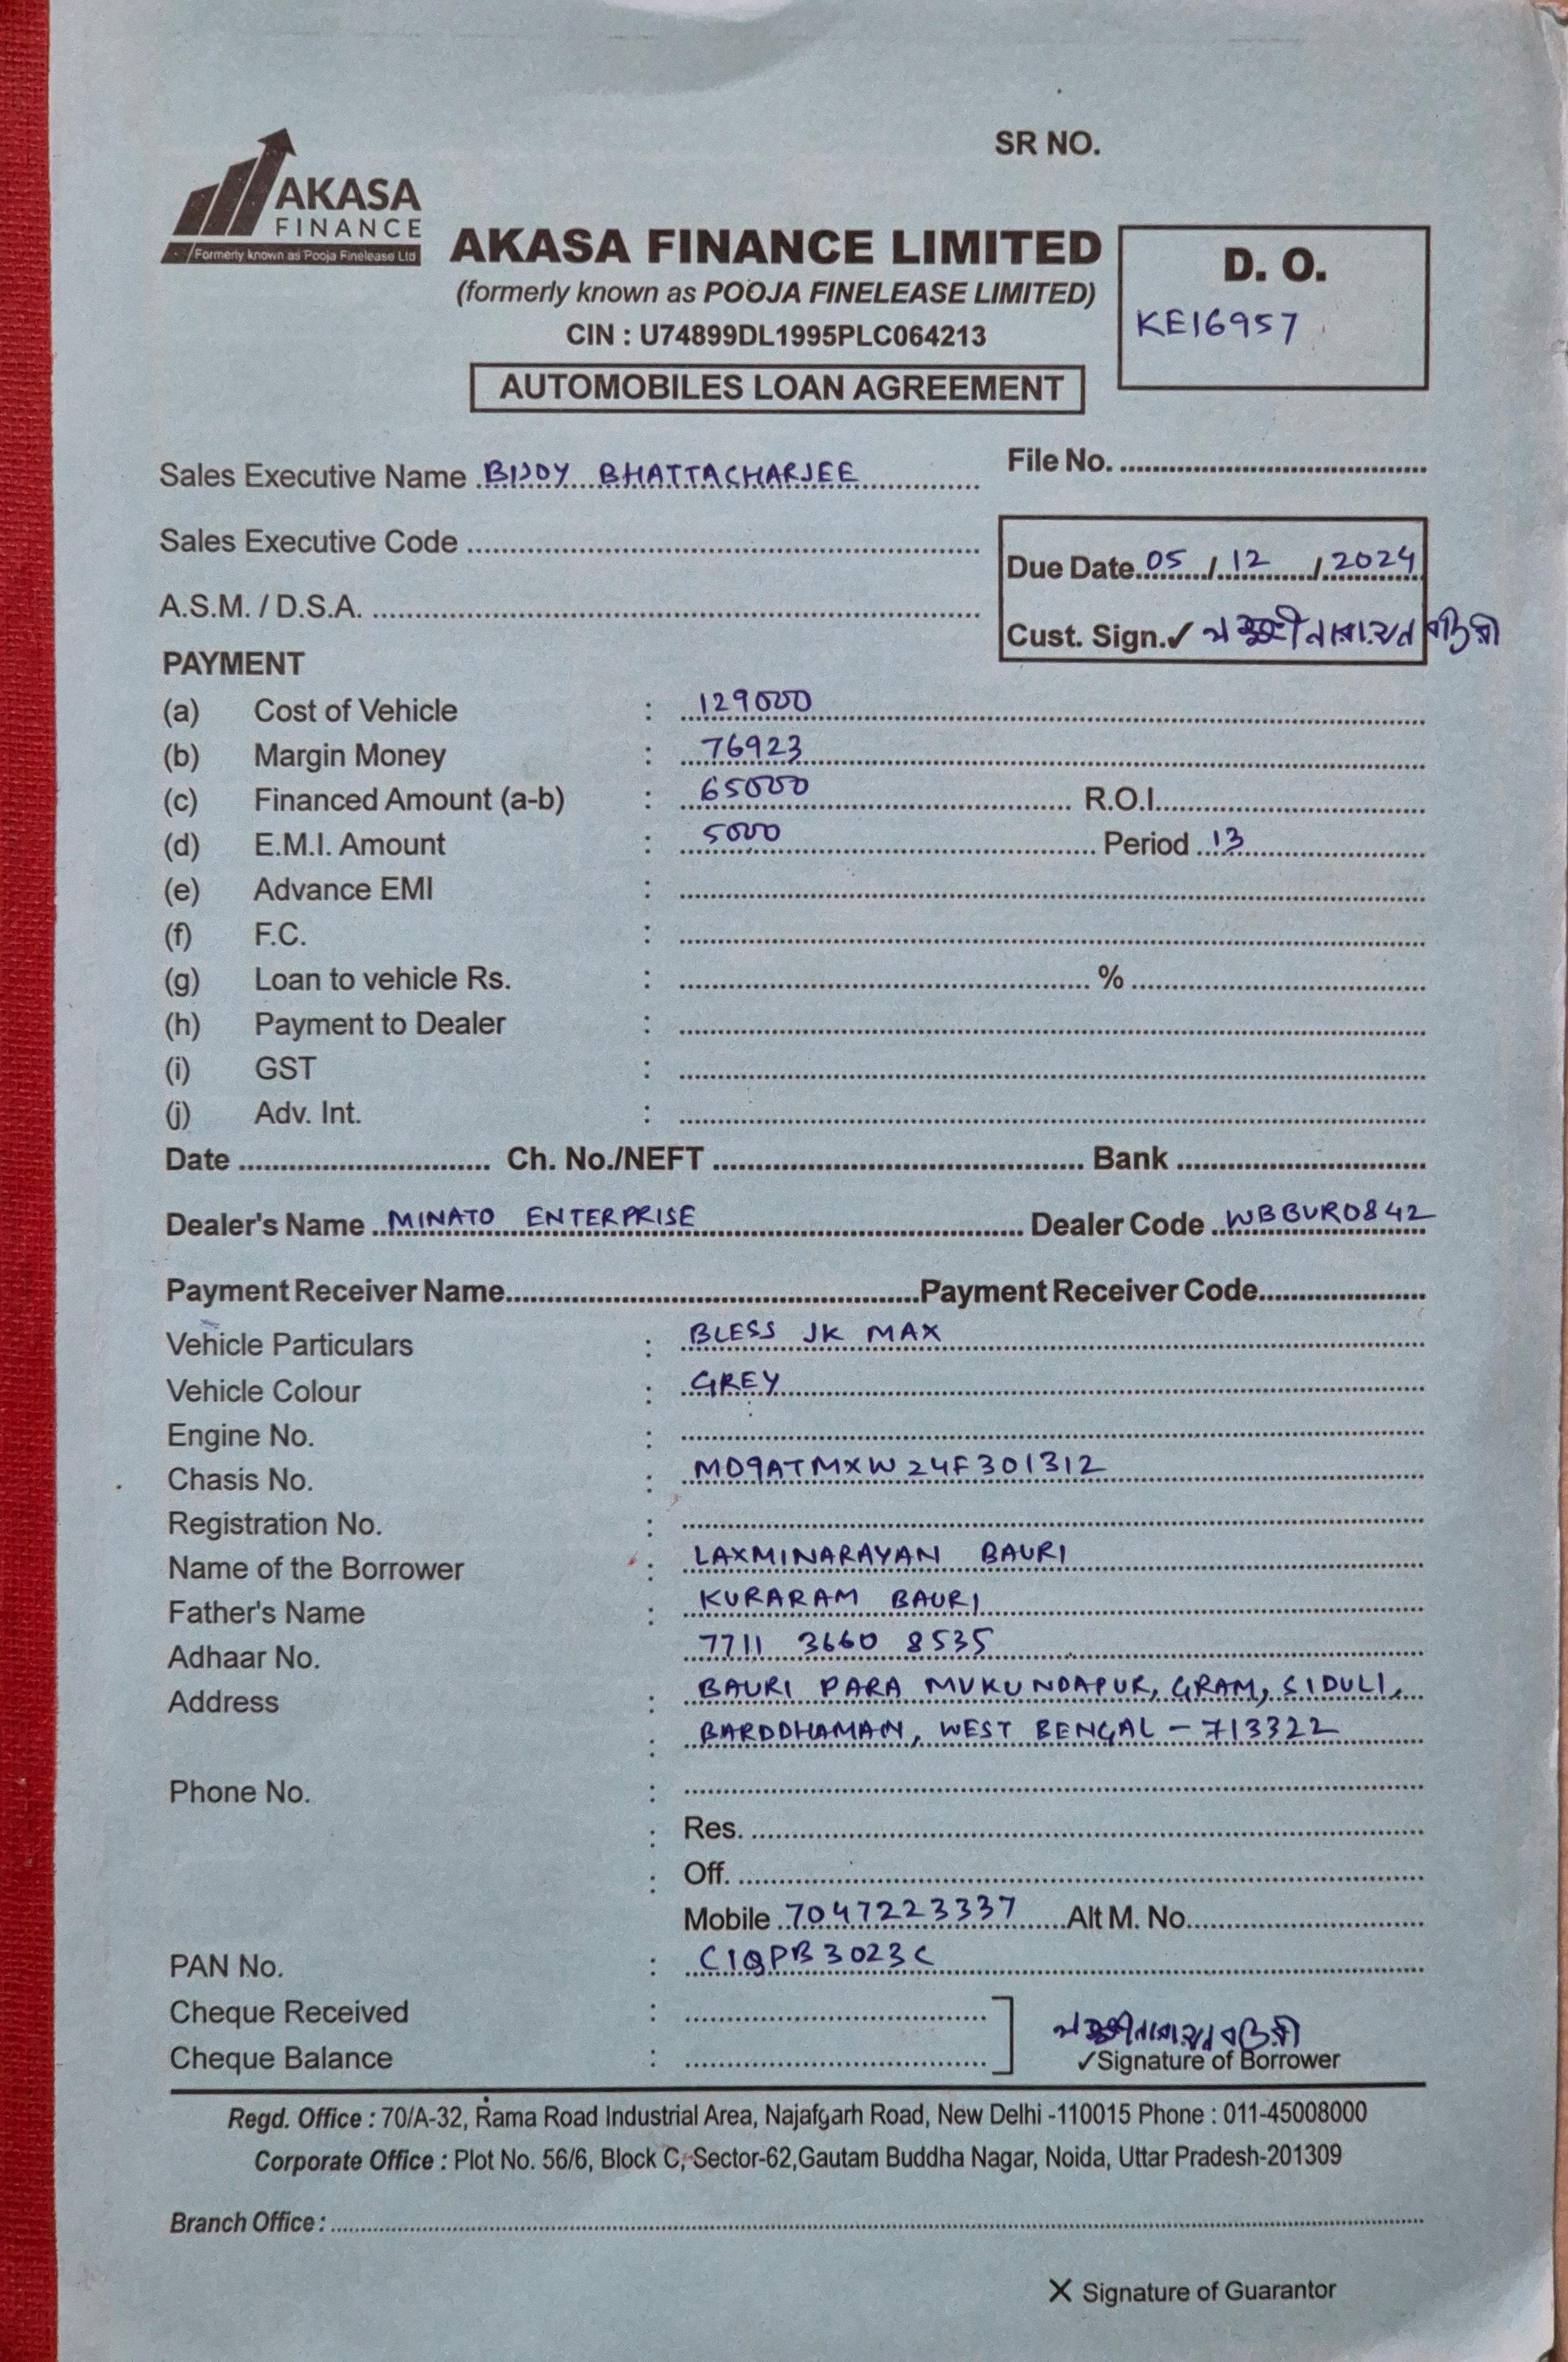 SR NO.
AKASA
FINANCE
Formerly known as Pooja Finelease Ltd
AKASA FINANCE LIMITED
(formerly known as POOJA FINELEASE LIMITED)
CIN : U74899DL1995PLC064213
AUTOMOBILES LOAN AGREEMENT
D. O.
KE16957
Sales Executive Name BIJOY BHATTACHARJEE
File No.
Sales Executive Code
Due Date 05 / 12 / 2024
A.S.M. / D.S.A.
Cust. Sign.✓
PAYMENT
(a) Cost of Vehicle : 129000
(b) Margin Money : 76923
(c) Financed Amount (a-b) : 65000 R.O.I.
(d) E.M.I. Amount : 5000 Period 13
(e) Advance EMI :
(f) F.C. :
(g) Loan to vehicle Rs. : %
(h) Payment to Dealer :
(i) GST :
(j) Adv. Int. :
Date Ch. No./NEFT Bank
Dealer's Name MINATO ENTERPRISE Dealer Code WBBUR0842
Payment Receiver Name Payment Receiver Code
Vehicle Particulars : BLESS JK MAX
Vehicle Colour : GREY
Engine No. :
Chasis No. : MD9ATMXW24F301312
Registration No. :
Name of the Borrower : LAXMINARAYAN BAURI
Father's Name : KURARAM BAURI
Adhaar No. 7711 3660 8535
Address : BAURI PARA MUKUNDAPUR, GRAM, SIDULI,
: BARDDHAMAN, WEST BENGAL - 713322
Phone No. :
: Res.
: Off.
Mobile 7047223337 Alt M. No.
PAN No. : CIQPB3023C
Cheque Received :
Cheque Balance :
✓Signature of Borrower
Regd. Office : 70/A-32, Rama Road Industrial Area, Najafgarh Road, New Delhi -110015 Phone : 011-45008000
Corporate Office : Plot No. 56/6, Block C, Sector-62,Gautam Buddha Nagar, Noida, Uttar Pradesh-201309
Branch Office :
X Signature of Guarantor